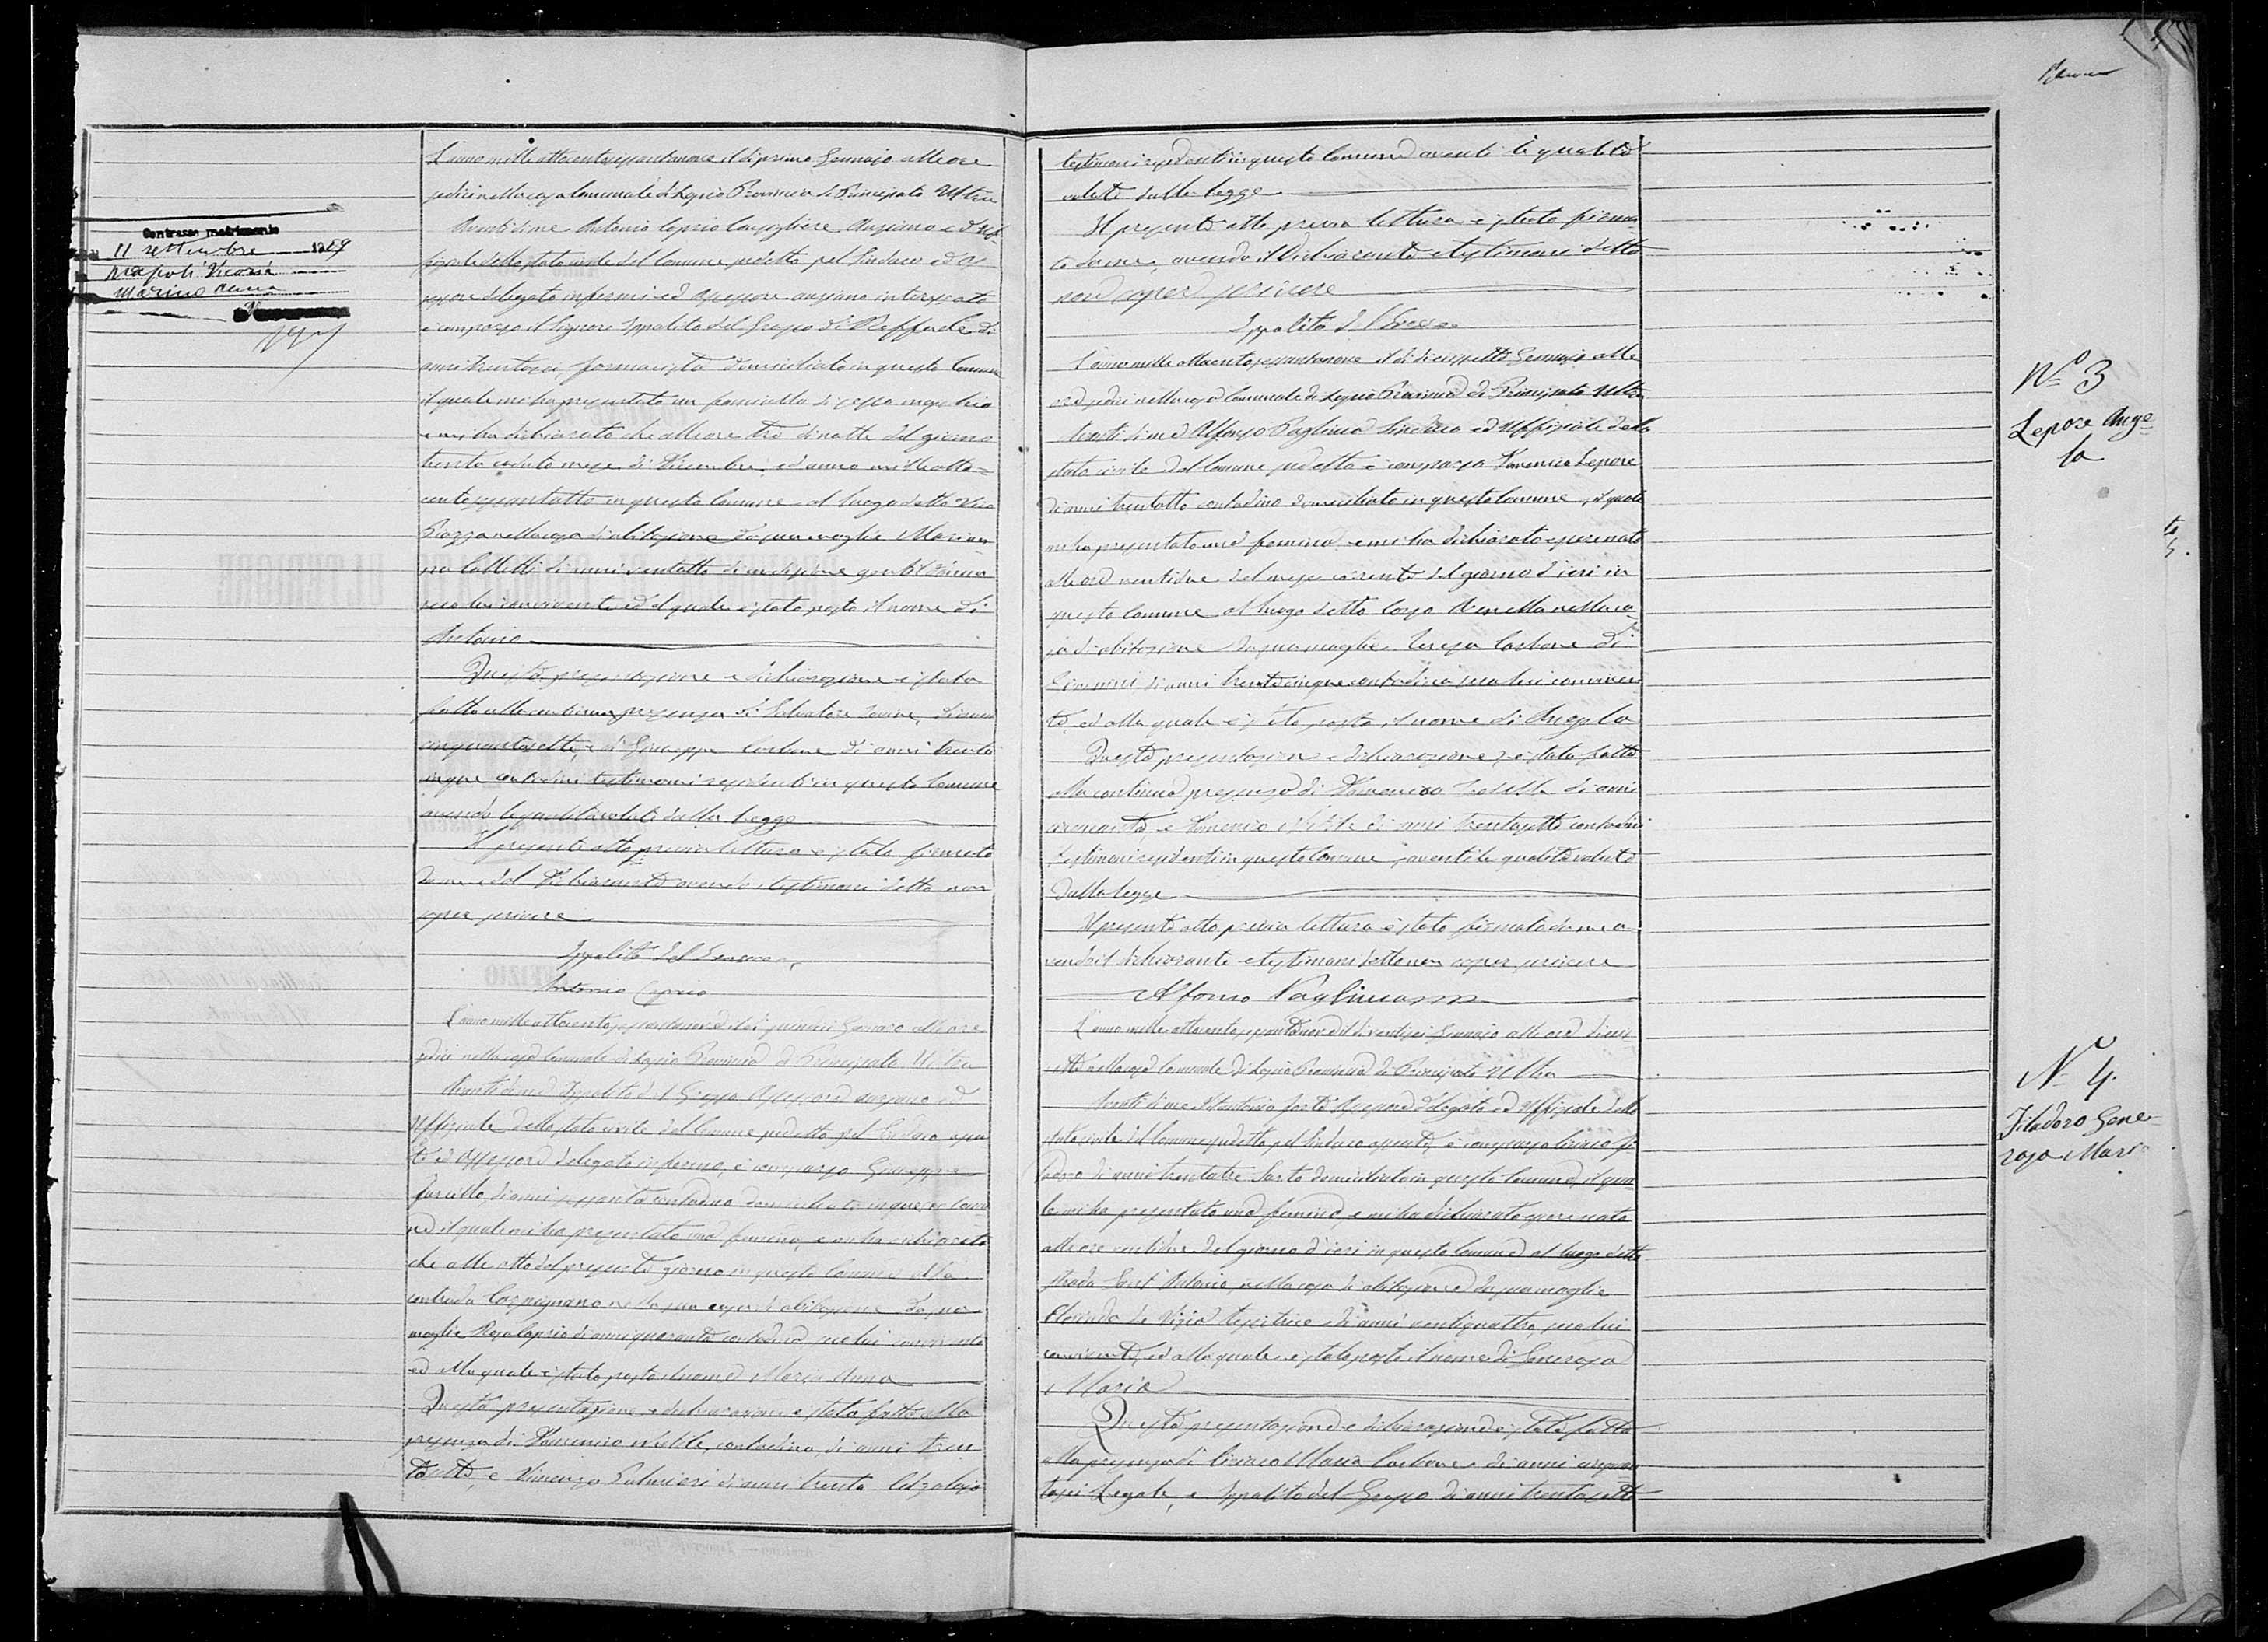 Contrasse matrimonio
11 settembre 1889
Napoli Vicaria
Marino Anna
L'anno mille ottocentosessantanove il dì primo Gennajo alle ore
sedici nella casa Comunale di Lapio Provincia di Principato Ultra
Avanti di me Antonio Caprio Consigliere Anziano ed Uf=
fiziale dello stato civile del Comune sudetto pel Sindaco ed As
sessore delegato infermi ed Assessore anziano interessato
è comparso il Signore Ippolito del Grosso di Raffaele di
anni trentasei, farmacista domiciliato in questo Comune
il quale mi ha presentato un fanciullo di sesso maschio
e mi ha dichiarato che alle ore tre di notte del giorno
trenta caduto mese di Dicembre ed anno mille otto=
cento sessantotto in questo Comune al luogo detto Vico
Piazza nella casa di abitazione da sua moglie Marian
na di anni ventotto di condizione gentildonna
seco lui convivente ed al quale è stato posto il nome di
Antonio
Questa presentazione e dichiarazione è stata
fatta alla continua presenza di Salvatore di anni
cinquantasette, e di Giuseppe Carbone di anni trenta
cinque contadini testimoni residenti in questo Comune
avendo le qualità volute dalla Legge
Il presente atto previa lettura è stato firmato
da me e dal Dichiarante avendo i testimoni detto non
saper scrivere
Ippolito del Grosso
Antonio Caprio
L'anno mille ottocentosessantanove il dì quindici Gennaro alle ore
sedici nella casa Comunale di Lapio Provincia di Principato Ultra
Avanti di me Ippolito del Grosso Assessore anziano ed
Uffiziale dello stato civile del Comune sudetto pel Sindaco assen
te ed Assessore delegato infermo, è comparso Giuseppe
di anni sessanta contadino domiciliato in questo Comu
ne il quale mi ha presentato una femina, e mi ha dichiarato
che alle otto del presente giorno in questo Comune alla
contrada Carpignano nella sua casa di abitazione da sua
moglie Rosa Caprio di anni quaranta contadina seco lui convivente
ed alla quale è stato posto il nome di Maria Anna
Questa presentazione e dichiarazione è stata fatta alla
presenza di Domenico contadino, di anni tren
tasette, e Vincenzo di anni trenta Calzolajo
testimoni residenti in questo Comune aventi le qualità
volute dalla legge
Il presente atto previa lettura è stato firma
to da me, avendo il Dichiarante e testimoni detto
non saper scrivere
Ippolito del Grosso
L'anno mille ottocentosessantanove il dì diciassette Gennajo alle
ore sedici nella casa Comunale di Lapio Provincia di Principato Ultra
Avanti di me Alfonso Pagliuca Sindaco ed Uffiziale dello
stato civile del Comune sudetto è comparso Domenico Lepore
di anni trentotto contadino domiciliato in questo Comune, il quale
mi ha presentato una femina e mi ha dichiarato essere nata
alle ore ventidue del mese corrente del giorno d'ieri in
questo Comune al luogo detto nella ca
sa di abitazione da sua moglie Teresa Carbone di
di anni trentacinque contadina seco lui conviven
te, ed alla quale è stato posto il nome di Angela
Questa presentazione e dichiarazione è stata fatta
alla continua presenza di Domenico di anni
cinquanta e Domenico di anni trentasette contadini
testimoni residenti in questo Comune, aventi le qualità volute
dalla legge
Il presente atto previa lettura è stato firmato da me a=
vendo il dichiarante e testimoni detto non saper scrivere
Alfonso Pagliuca
L'anno mille ottocentosessantanove il dì ventisei Gennajo alle ore dicias
sette nella casa Comunale di Lapio Provincia di Principato Ultra
Avanti di me Assessore delegato ed Uffiziale dello
stato civile del Comune sudetto pel Sindaco assente, è comparso Ciriaco Fi
ladoro di anni trentatre Sarto domiciliato in questo Comune, il qua
le mi ha presentato una femina, e mi ha dichiarato essere nata
alle ore ventidue del giorno d'ieri in questo Comune al luogo detto
strada Sant'Antonio, nella casa di abitazione da sua moglie
Florinda de Vizia tessitrice di anni ventiquattro, seco lui
convivente, ed alla quale è stato posto il nome di Generosa
Maria
Questa presentazione e dichiarazione è stata fatta
alla presenza di Ciriaco Maria Carbone di anni cinquan
tasei Legale, e Ippolito del Grosso di anni trentasette
N.º 3
Lepore Ange=
la
N.º 4.
Filadoro Gene=
rosa Maria